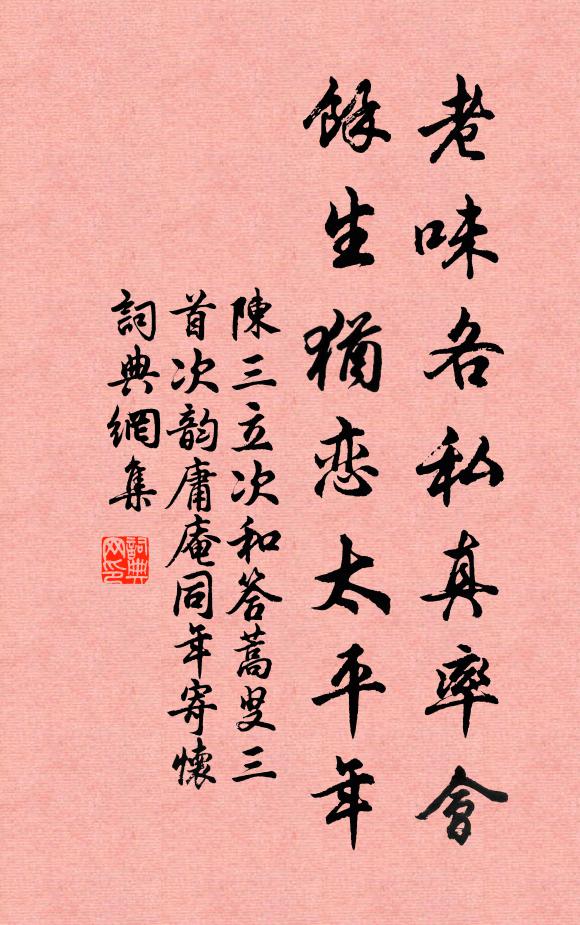 老味各私真率會
餘生猶恋太平年
陳三立次和答蒿叟三
首次韵庸庵同年寄懷
詞典網集
詞典
网印